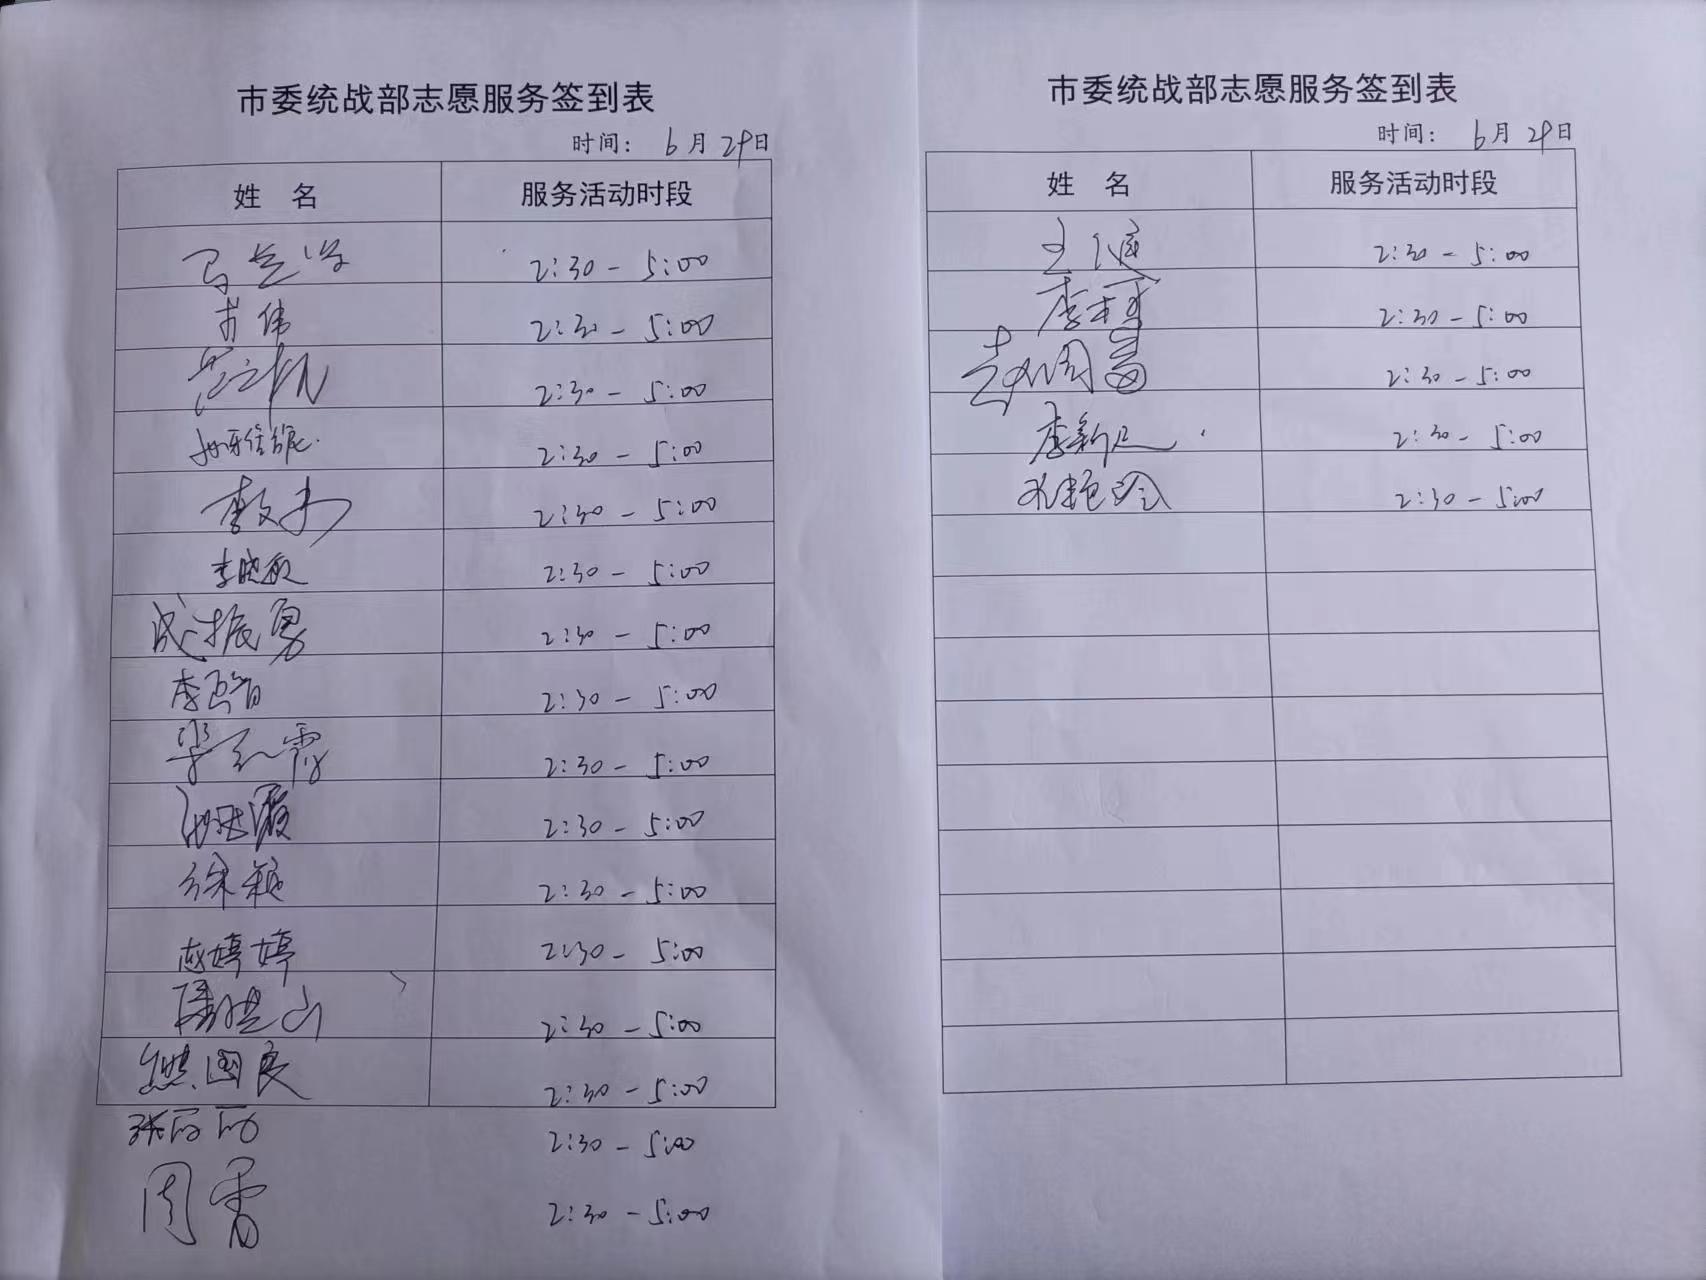 市委统战部志愿服务签到表
时间： 6月29日
姓 名 服务活动时段
2:30 - 5:00
肖伟 2:30 - 5:00
2:30 - 5:00
2:30 - 5:00
2:30 - 5:00
李晓敏 2:30 - 5:00
成振勇 2:30 - 5:00
2:30 - 5:00
梁红霞 2:30 - 5:00
2:30 - 5:00
徐颖 2:30 - 5:00
赵婷婷 2:30 - 5:00
2:30 - 5:00
熊国良 2:30 - 5:00
张丽丽 2:30 - 5:00
周雷 2:30 - 5:00
市委统战部志愿服务签到表
时间： 6月29日
姓 名 服务活动时段
2:30 - 5:00
李 2:30 - 5:00
赵国富 2:30 - 5:00
李新 2:30 - 5:00
2:30 - 5:00